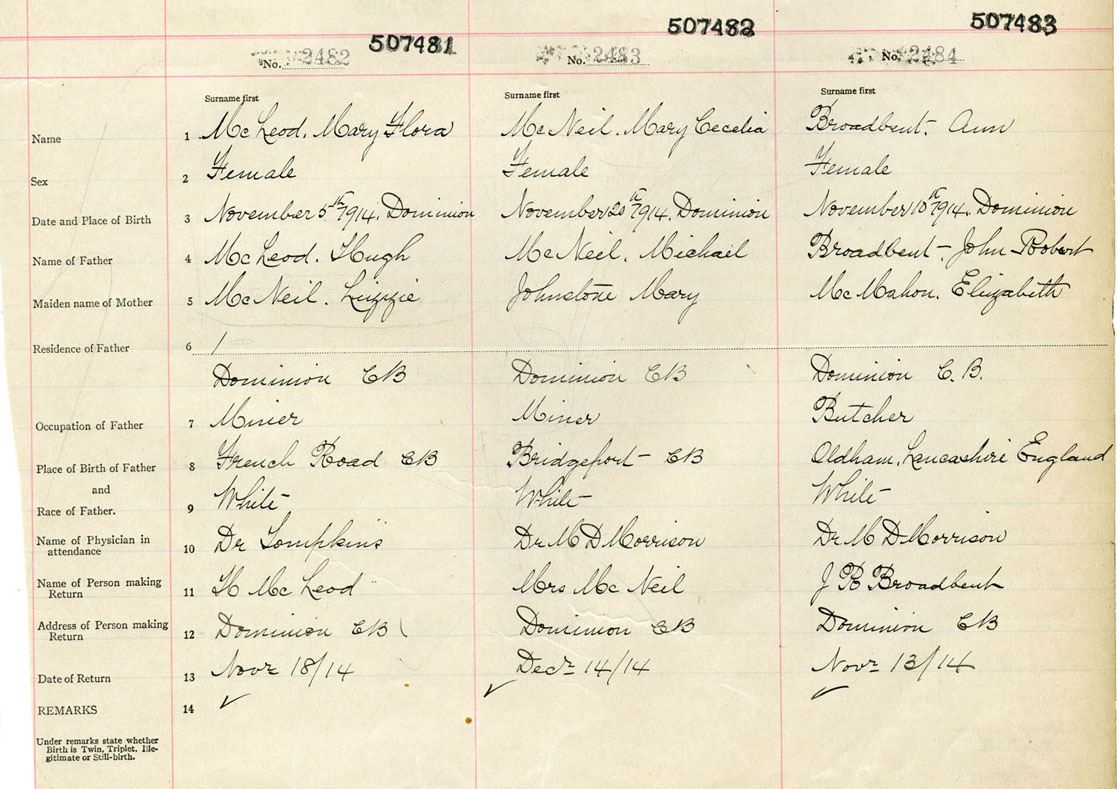 507481 507482 507483
No. 2482 No. 2483 No. 2484
Surname first Surname first Surname first
Name 1 McLeod, Mary Flora McNeil. Mary Cecelia Broadbent. Ann
Sex 2 Female Female Female
Date and Place of Birth 3 November 5th 1914, Dominion November 20th 1914, Dominion November 10th 1914, Dominion
Name of Father 4 McLeod. Hugh McNeil, Michail Broadbent - John Robert
Maiden name of Mother 5 McNeil. Lizzie Johnstone Mary McMahon. Elizabeth
Residence of Father 6
Dominion CB Dominion CB Dominion C.B.
Occupation of Father 7 Miner Miner Butcher
Place of Birth of Father 8 French Road CB Bridgeport - CB Oldham, Lancashire England
and
Race of Father. 9 White White White
Name of Physician in
attendance 10 Dr Tompkins Dr M D Morrison Dr M D Morrison
Name of Person making
Return 11 H McLeod Mrs McNeil J R Broadbent
Address of Person making
Return 12 Dominion CB Dominion CB Dominion CB
Date of Return 13 Novr 18/14 Decr 14/14 Novr 13/14
REMARKS 14 ✓ ✓ ✓
Under remarks state whether
Birth is Twin, Triplet, Ille-
gitimate or Still-birth.